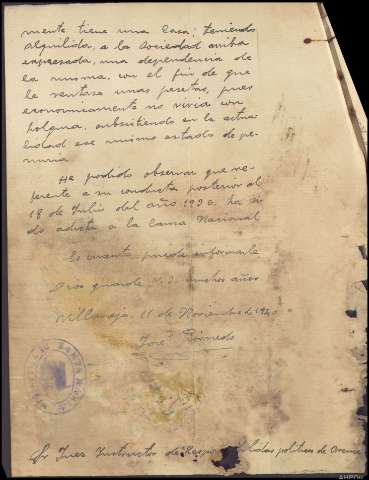 mente tiene una casa; teniendo
alquilada, a la sociedad arriba
expresada, una dependencia de
la misma, con el fin de que
le rentase unas pesetas, pues
economicamente no vivia con
holgura, subsistiendo en la actua
lidad ese mismo estado de pe-
nuria.
He podido observar que re-
ferente a su conducta posterior al
18 de Julio del año 1936, ha si
do adicto a la Causa Nacional
Es cuanto puede informarle
Dios guarde V.S. muchos años
11 de Noviembre de 1940
José
Sr Juez Instructor de Responsabilidades politicas de Orense
AHPOU